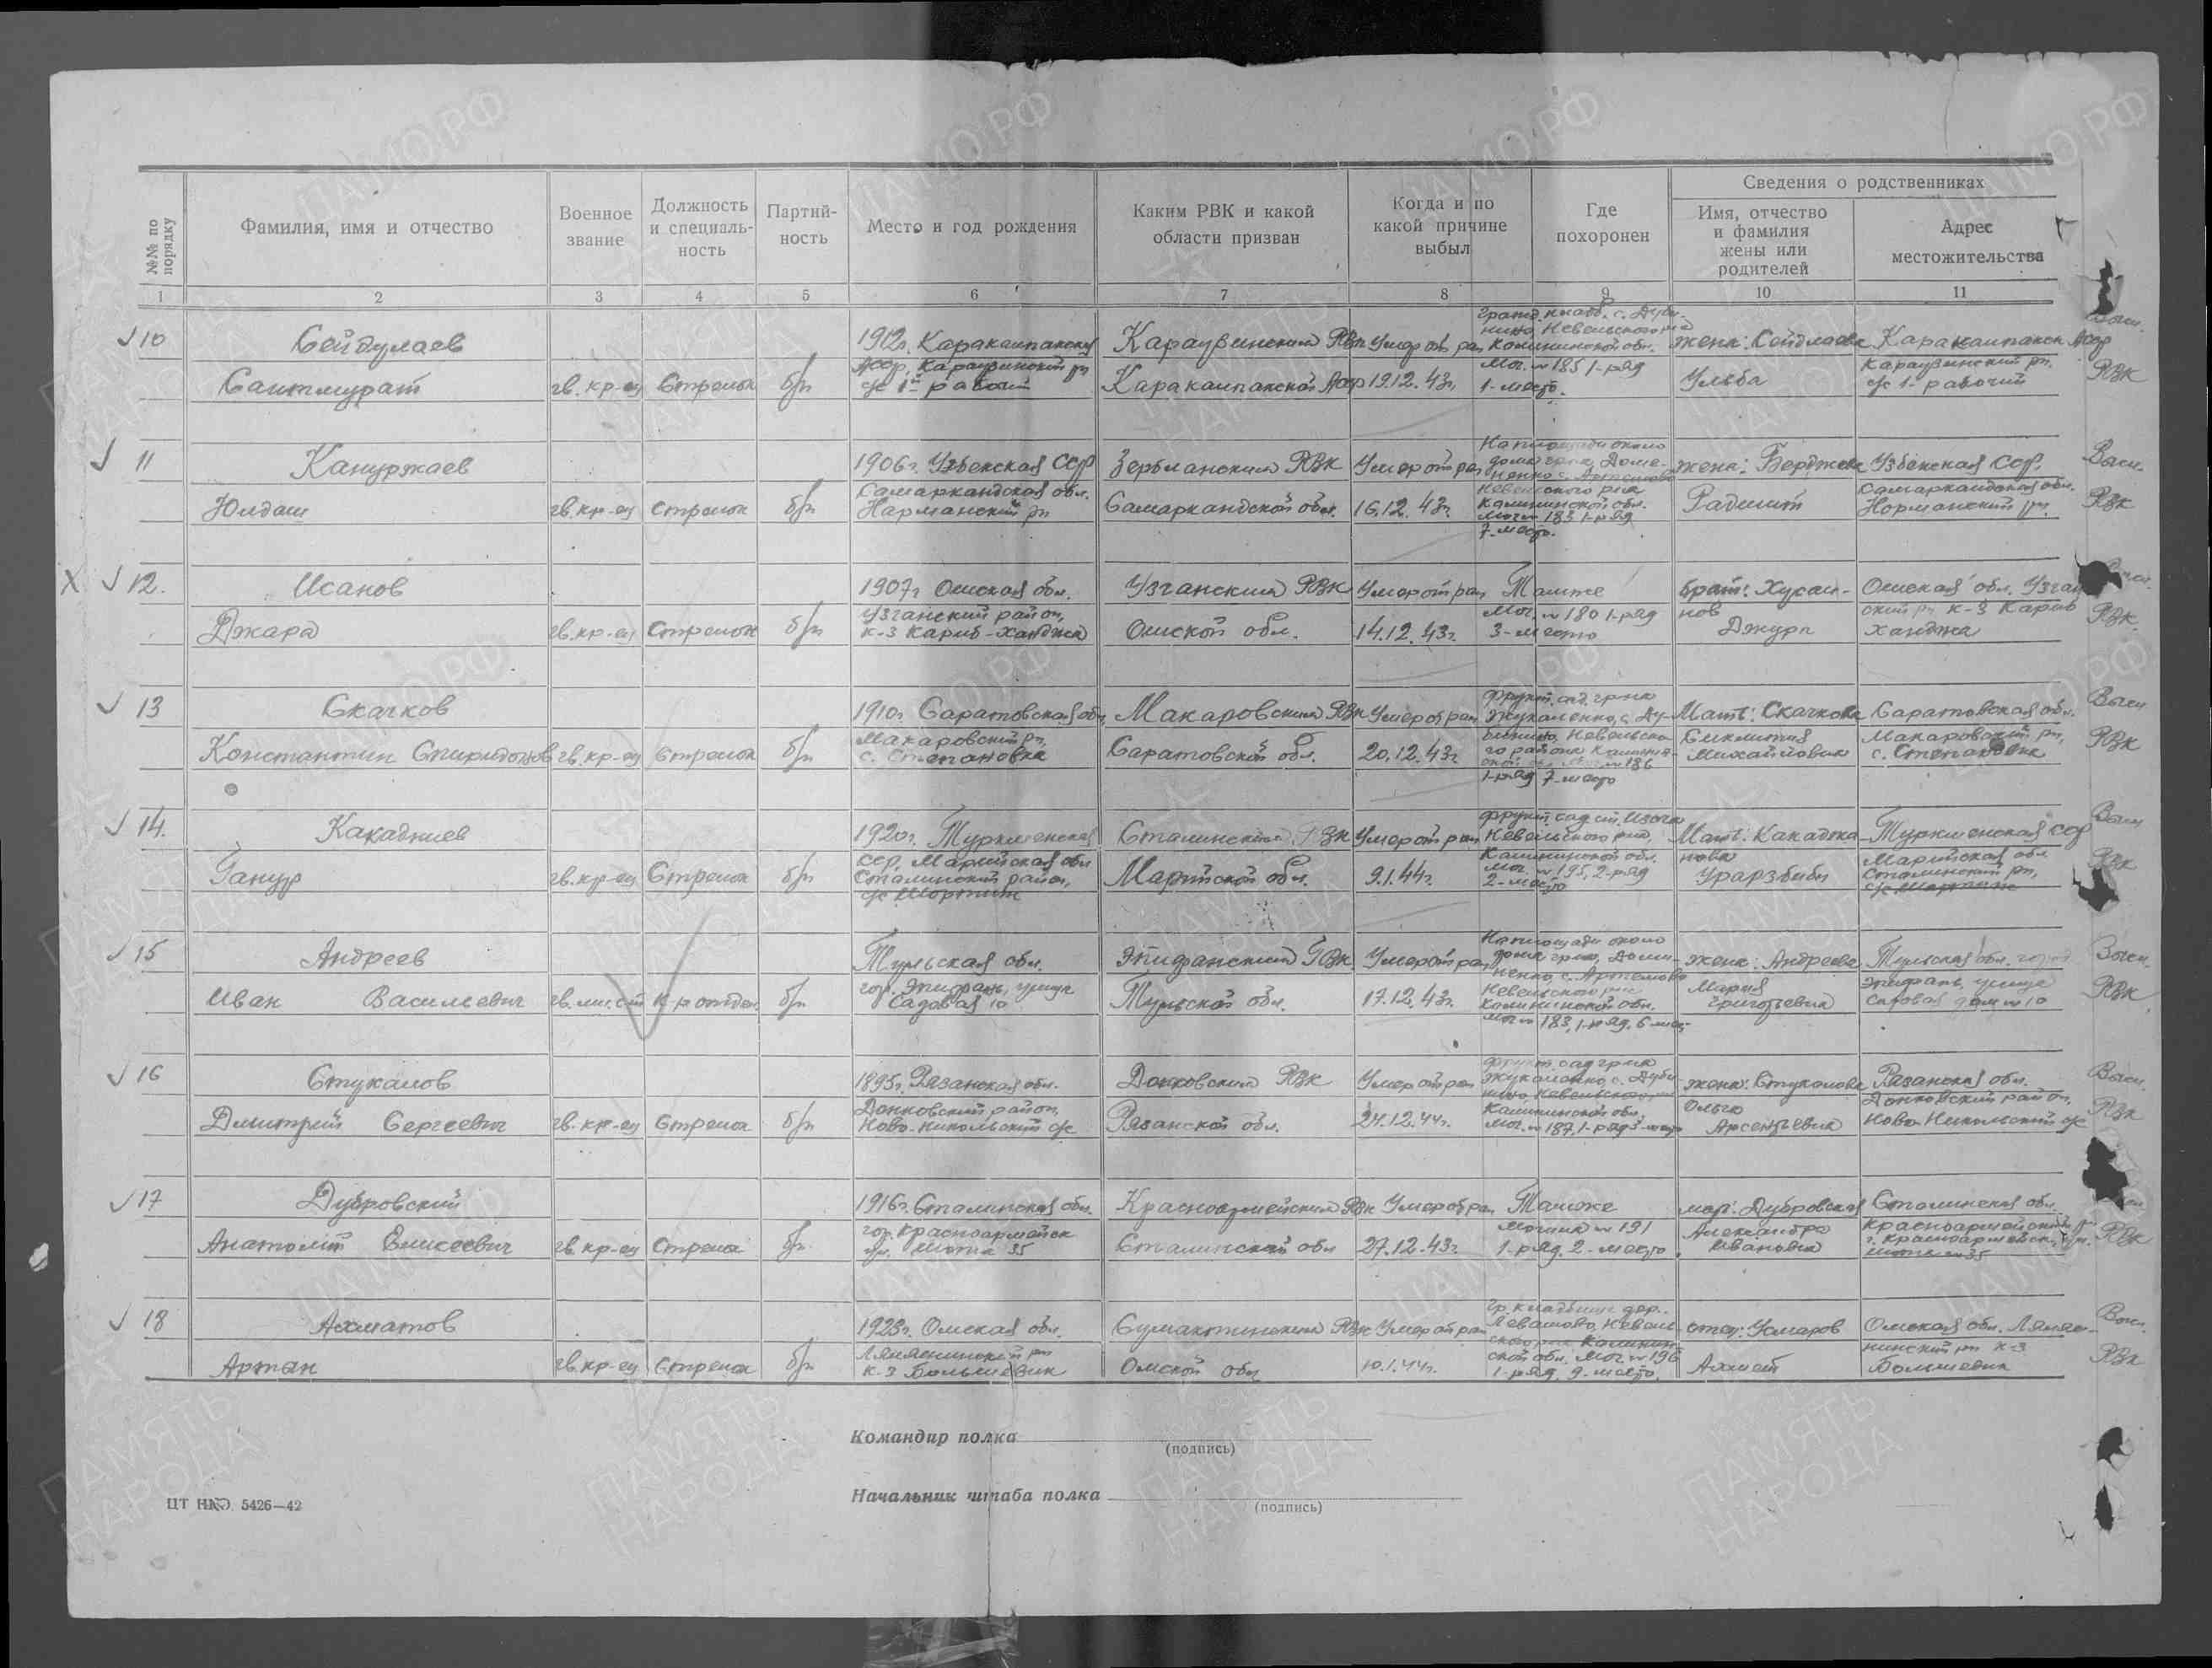 №№ по порядку
Фамилия, имя и отчество
Военное звание
Должность и специаль-ность
Партий-ность
Место и год рождения
Каким РВК и какой области призван
Когда и по какой причине выбыл
Где похоронен
Сведения о родственниках
Имя, отчество и фамилия жены или родителей
Адрес местожительства
1 2 3 4 5 6 7 8 9 10 11
10 Сейдулаев
Саитмурат
гв. кр-ец Стрелок б/п
1912г. Каракалпакская
АССР, Караузинский рн
с/с 1й рабочий
Караузинским РВК
Каракалпакской АССР
Умер от ран
19.12.43г.
Гражд. кладб. с. Дуби-
нино, Невельского р-на
Калининской обл.
Мог. № 185 1-ряд
1-место.
жена: Сейдлаева
Ульба
Каракалпакск АССР
Караузинский рн,
с/с 1-рабочий
РВК
11 Кануржаев
Юлдаш
гв. кр-ец Стрелок б/п
1906г. Узбекская ССР
Самаркандская обл.
Нарманский рн
РВК
Самаркандской обл.
Умер от ран
16.12.43г.
На площади около
дома
с. Артемово
Невельского р-на
Калининской обл.
Мог № 183 1-ряд
7-место.
жена:
Радишт
Узбекская ССР,
Самаркандская обл.
Норманский рн.
РВК
12. Исанов
Джара
гв. кр-ец Стрелок б/п
1907г Ошская обл.
Узганский район,
к-з Кариб-Ханджа
Узганским РВК
Ошской обл.
Умер от ран
14.12.43г.
Там же
Мог. № 180 1-ряд
3-место
брат: Хусаи-
нов
Джура
Ошская обл. Узган
ский рн к-з Кариб
ханджа
РВК.
13 Скачков
Константин Спиридонов
гв. кр-ец Стрелок б/п
1910г. Саратовская обл,
Макаровский рн,
с. Степановка
Макаровским РВК
Саратовской обл.
Умер от ран
20.12.43г.
Фрукт. сад. гр-на
Жукаленко, с. Ду-
бинино, Невельско-
го района Калинин-
ской обл. Мог № 186
1-ряд 7-место
Мать: Скачкова
Михайловна
Саратовская обл.
Макаровский рн,
с. Степановка
РВК
14. Какаджиев
Ганур
гв. кр-ец Стрелок б/п
1920г. Туркменская
ССР, Марийская обл
Сталинский район,
с/с
Сталинским РВК
Марийской обл.
Умер от ран
9.1.44г.
Фрукт. сад ст. Изоча
Невельского рна,
Калининской обл.
Мог. № 195, 2-ряд
2-место
Мать: Какаджа-
нова
Уразбиби
Туркменская ССР
Марийская обл
Сталинский рн,
РВК
15 Андреев
Иван Васильевич
гв. мл. с-т К-р отдел. б/п
Тульская обл.
гор. Эпифань, улица
Садовая 10
Эпифанским РВК
Тульской обл.
Умер от ран
17.12.43г.
На площади около
дома гр-на, Доми-
ненко, с. Артемово
Невельского рна
Калининской обл.
Мог № 183, 1-ряд, 6-мес-
жена: Андреева
Мария
Григорьевна
Тульская обл. город
Эпифань, улица
Садовая дом № 10
РВК
16 Стукалов
Дмитрий Сергеевич
гв. кр-ец Стрелок б/п
1895г. Рязанская обл.
Донковский район,
Ново-Никольский с/с
Донковским РВК
Рязанской обл.
Умер от ран
24.12.44г.
Фрукт. сад гр-на
Жукаленко, с. Дуби
нино, Невельского рн
Калининской обл,
Мог. № 187, 1-ряд
жена: Стукалова
Ольга
Арсентьевна
Рязанская обл.
Донковский район,
Ново-Никольский с/с
РВК
17 Дубровский
Анатолий Елисеевич
гв. кр-ец Стрелок б/п
1916г. Сталинская обл.
гор. Красноармейск
ул. Шахта 35
Красноармейским РВК
Сталинской обл
Умер от ран
27.12.43г.
Там же
Могила № 191
1-ряд, 2-место
Дубровская
Александра
Ивановна
Сталинская обл.
Красноармейский рн
г. Красноармейск, ул.
РВК
18 Ахматов
Артан
гв. кр-ец Стрелок б/п
1923г. Ошская обл.
к-з Большевик
РВК
Ошской обл
Умер от ран
10.1.44г.
Гр. кладбище дер.
Левашово, Невель
ской обл. Мог № 196
1-ряд, 9-место.
отец: Умаров
Ахмет
Ошская обл.
нинский рн к-з
Большевик
РВК
Командир полка
(подпись)
Начальник штаба полка
(подпись)
ЦТ НКО. 5426—42
ПАМЯТЬ НАРОДА
ЦАМО.РФ